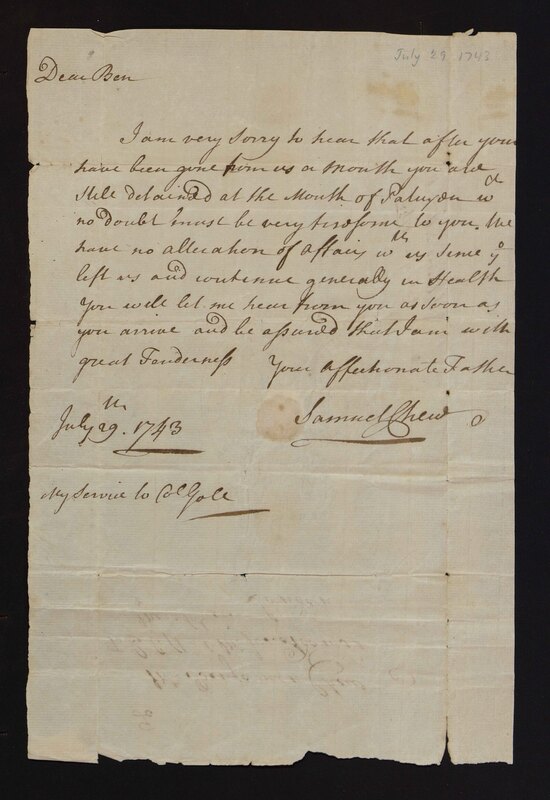 July 29 1743
Dear Ben
I am very Sorry to hear that after you
have been gone from us a Month you are
still detained at the Mouth of Patuxen wch
no doubt must be very tiresome to you. We
have no alteration of affairs wth us since yo
left us and continue generally in Health
You will let me hear from you as soon as
you arrive and be assured that I am with
great Tenderness Your affectionate Father
July 29th. 1743 Samuel Chew
My Service to Col Gale